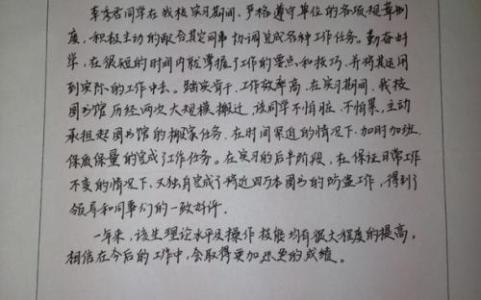 李秀君同学在我校实习期间、严格遵守单位的各项规章制
度、积极主动的配合其它同事协调完成各种工作任务。勤奋好
学、在很短的时间内就掌握了工作的要点和技巧、并将其运用
到实际的工作中去。踏实肯干、工作效率高、在实习期间、我校
图书馆历经两次大规模搬迁、该同学不怕脏、不怕累、主动
承担起图书馆的搬家任务、在时间紧迫的情况下、加时加班、
保质保量的完成了工作任务。在实习的后半阶段、在保证日常工作
不变的情况下、又独自完成了将近四万本图书的防盗工作、得到了
领导和同事们的一致好评。
一年来、该生理论水平及操作技能均有很大程度的提高、
相信在今后的工作中、会取得更加
的成绩。